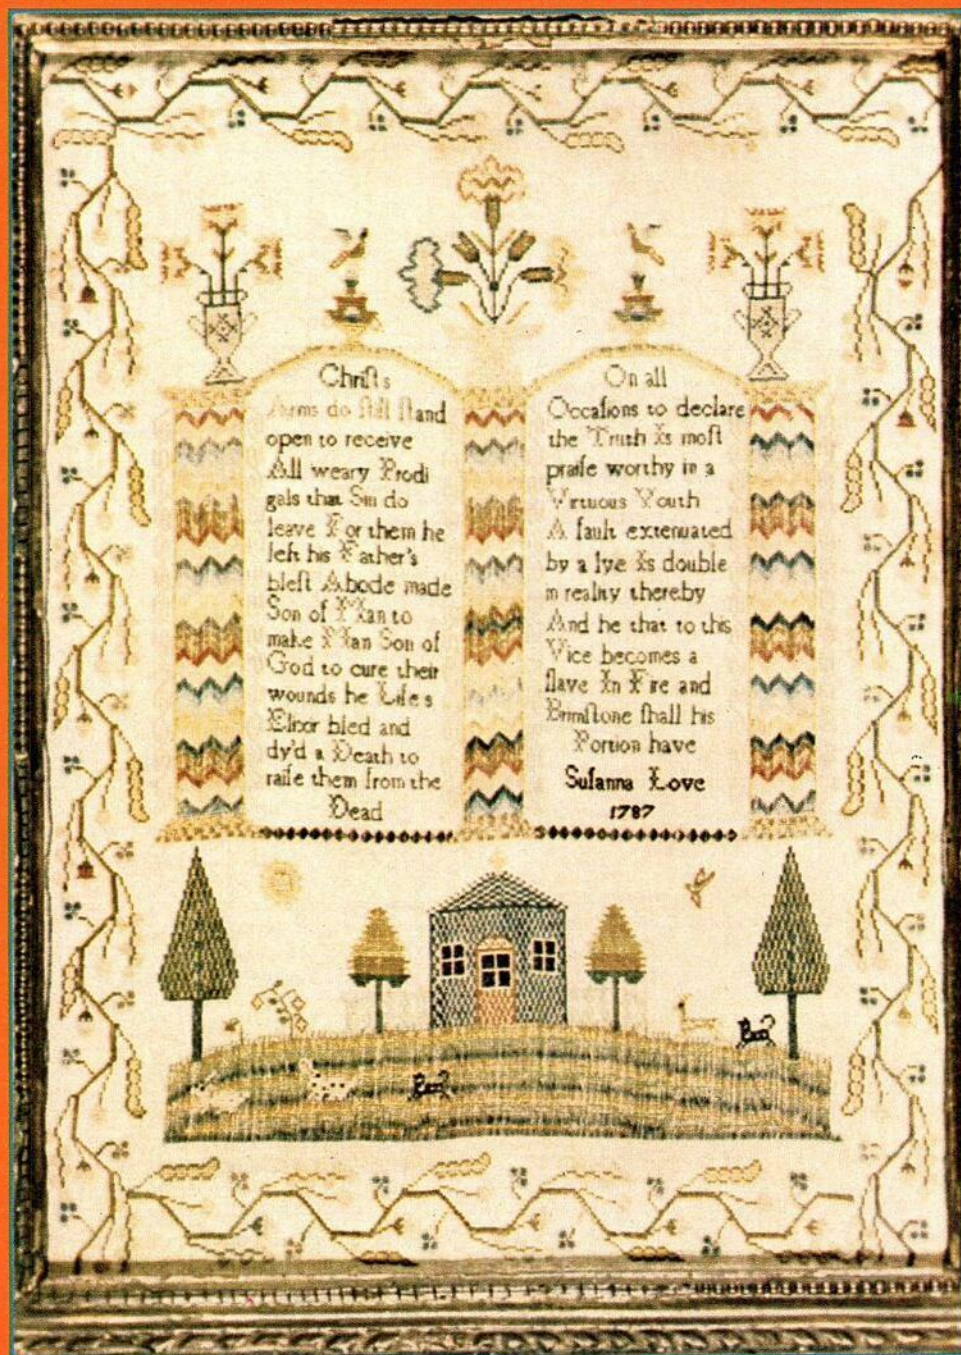 Chriſts
Arms do ſtill ſtand
open to receive
All weary Prodi
gals that Sin do
leave For them he
left his Father's
bleſt Abode made
Son of Man to
make Man Son of
God to cure their
wounds he Life s
Elixir bled and
dy'd a Death to
raiſe them from the
Dead
On all
Occaſions to declare
the Truth Is moſt
praiſe worthy in a
Virtuous Youth
A fault extenuated
by a lye Is double
in reality thereby
And he that to this
Vice becomes a
ſlave In Fire and
Brimſtone ſhall his
Portion have
Suſanna Love
1787